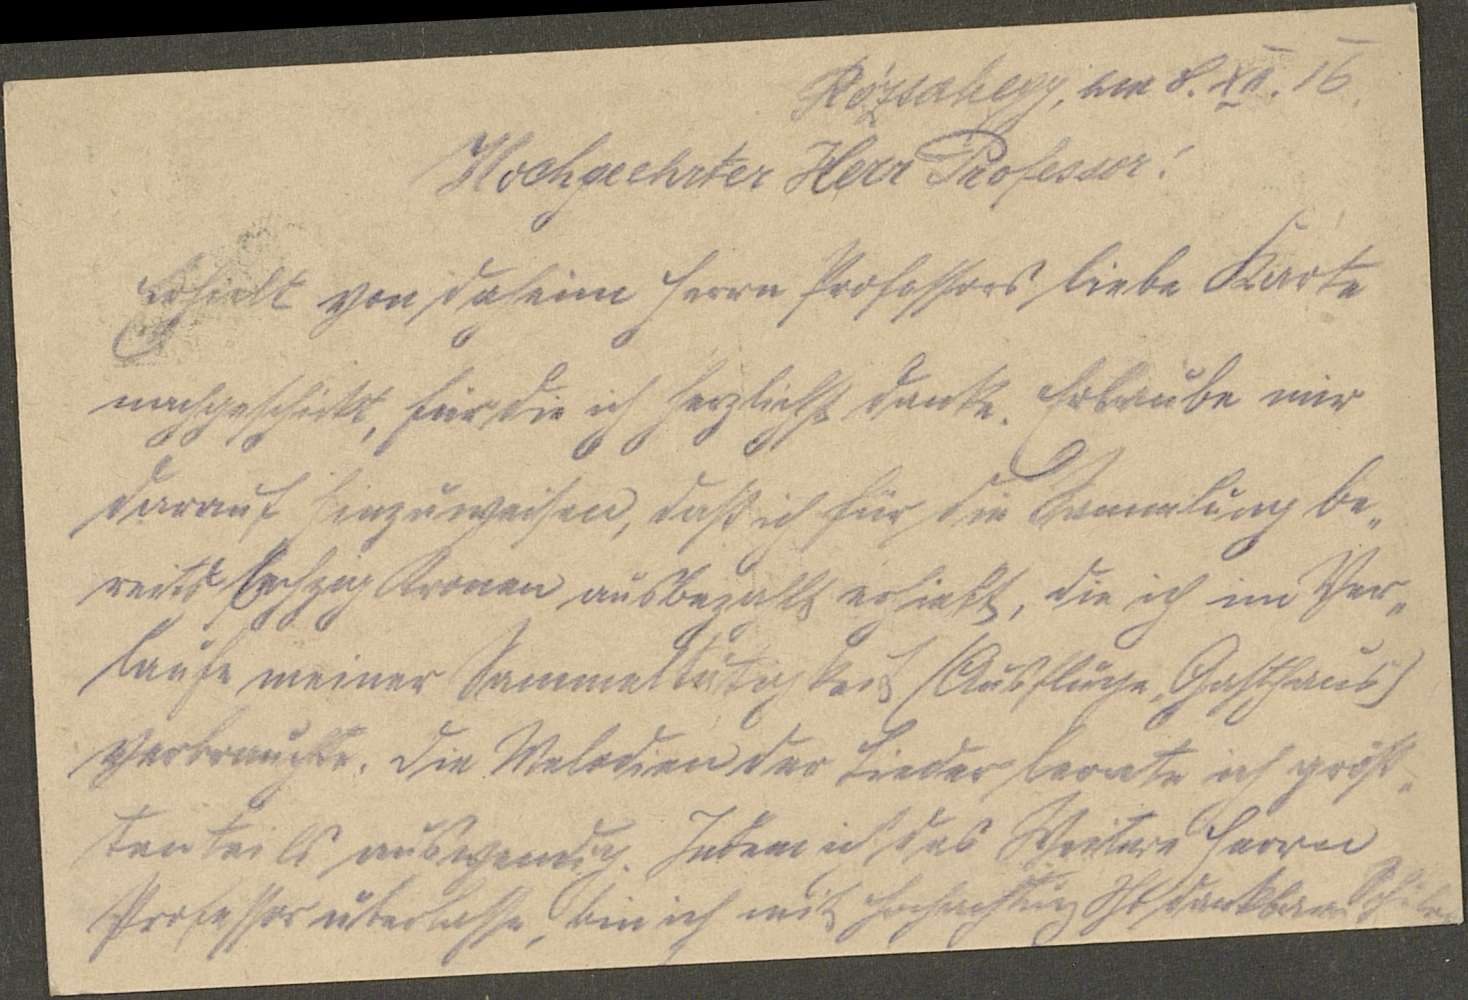 Rózsahegy, am 8. XII. 16.
Hochgeehrter Herr Professor!
Erhielt von daheim Herrn Professors liebe Karte
nachgeschickt, für die ich herzlichst danke. Erlaube mir
darauf hinzuweisen, daß ich für die Sammlung be„
reits sechzig Kronen ausbezahlt erhielt, die ich im Ver„
laufe meiner Sammeltätigkeit (Ausflüge, Gasthaus)
verbrauchte. Die Melodien der Lieder lernte ich größ„
tenteils auswendig. Indem ich das Weitere Herrn
Professor überlasse, bin ich mit Hochachtung Ihr dankbarer Schüler